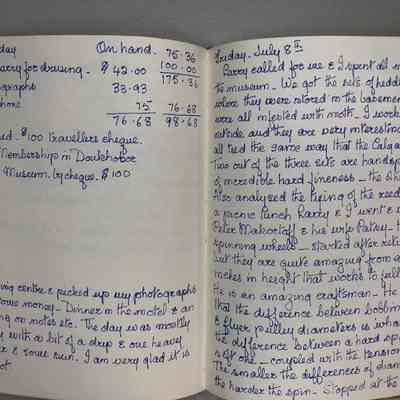 day On hand. 75.36
Larry for drawing - $ 42.00 100.00
ographs 33.93 175.36
phone 75 76.68
76.68 98.68
ed. $100 Travellers cheque
Membership in Doukhobor
Museum. by cheque. $100
ing centre & picked up my photographs
some money - Dinner in the motel & an
ng on notes etc. The day was mostly
y with a bit of a drip & one heavy
r & some sun. I am very glad it is
ot
Friday - July 8th
Larry called for me & I spent all
the museum. We got the sets of
where they were stored in the basement
were all infested with moth. I worked
outside and they are very interesting
all tied the same way that the Calga
Two out of the three sets are handsp
of incredible hard fineness - the
Also analysed the tying of the reed
a picnic lunch Larry & I went &
Peter Makortoff & his wife
spinning wheels - started after reti
but they are quite amazing from
inches in height that works to full
He is an amazing craftsman - He
that the difference between bobbin
& flyer pulley diameters is wha
the difference between a hard spin
soft one - coupled with the tension
The smaller the differences of diam
the harder the spin - Stopped at the